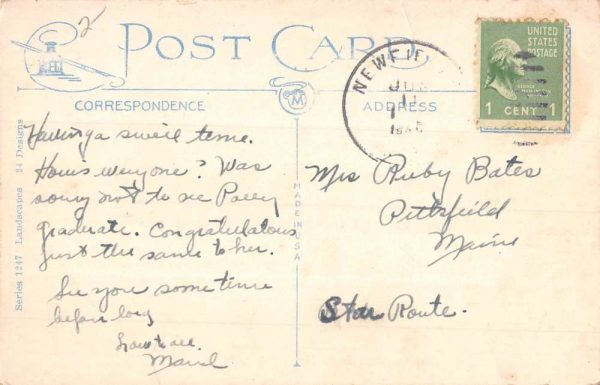 2
POST CARD
CORRESPONDENCE
ADDRESS
NEWFIE
JU
1
UNITED
STATES
POSTAGE
1 CENT 1
M
Having a swell time.
How's everyone? Was
sorry not to see Patty
graduate. Congratulations
just the same to her.
See you some time
before long
Love to all.
Series 1247 Landscapes 24 Designs
MADE IN U.S.A.
Mrs Ruby Bates
Pittsfield
Maine
Star Route.